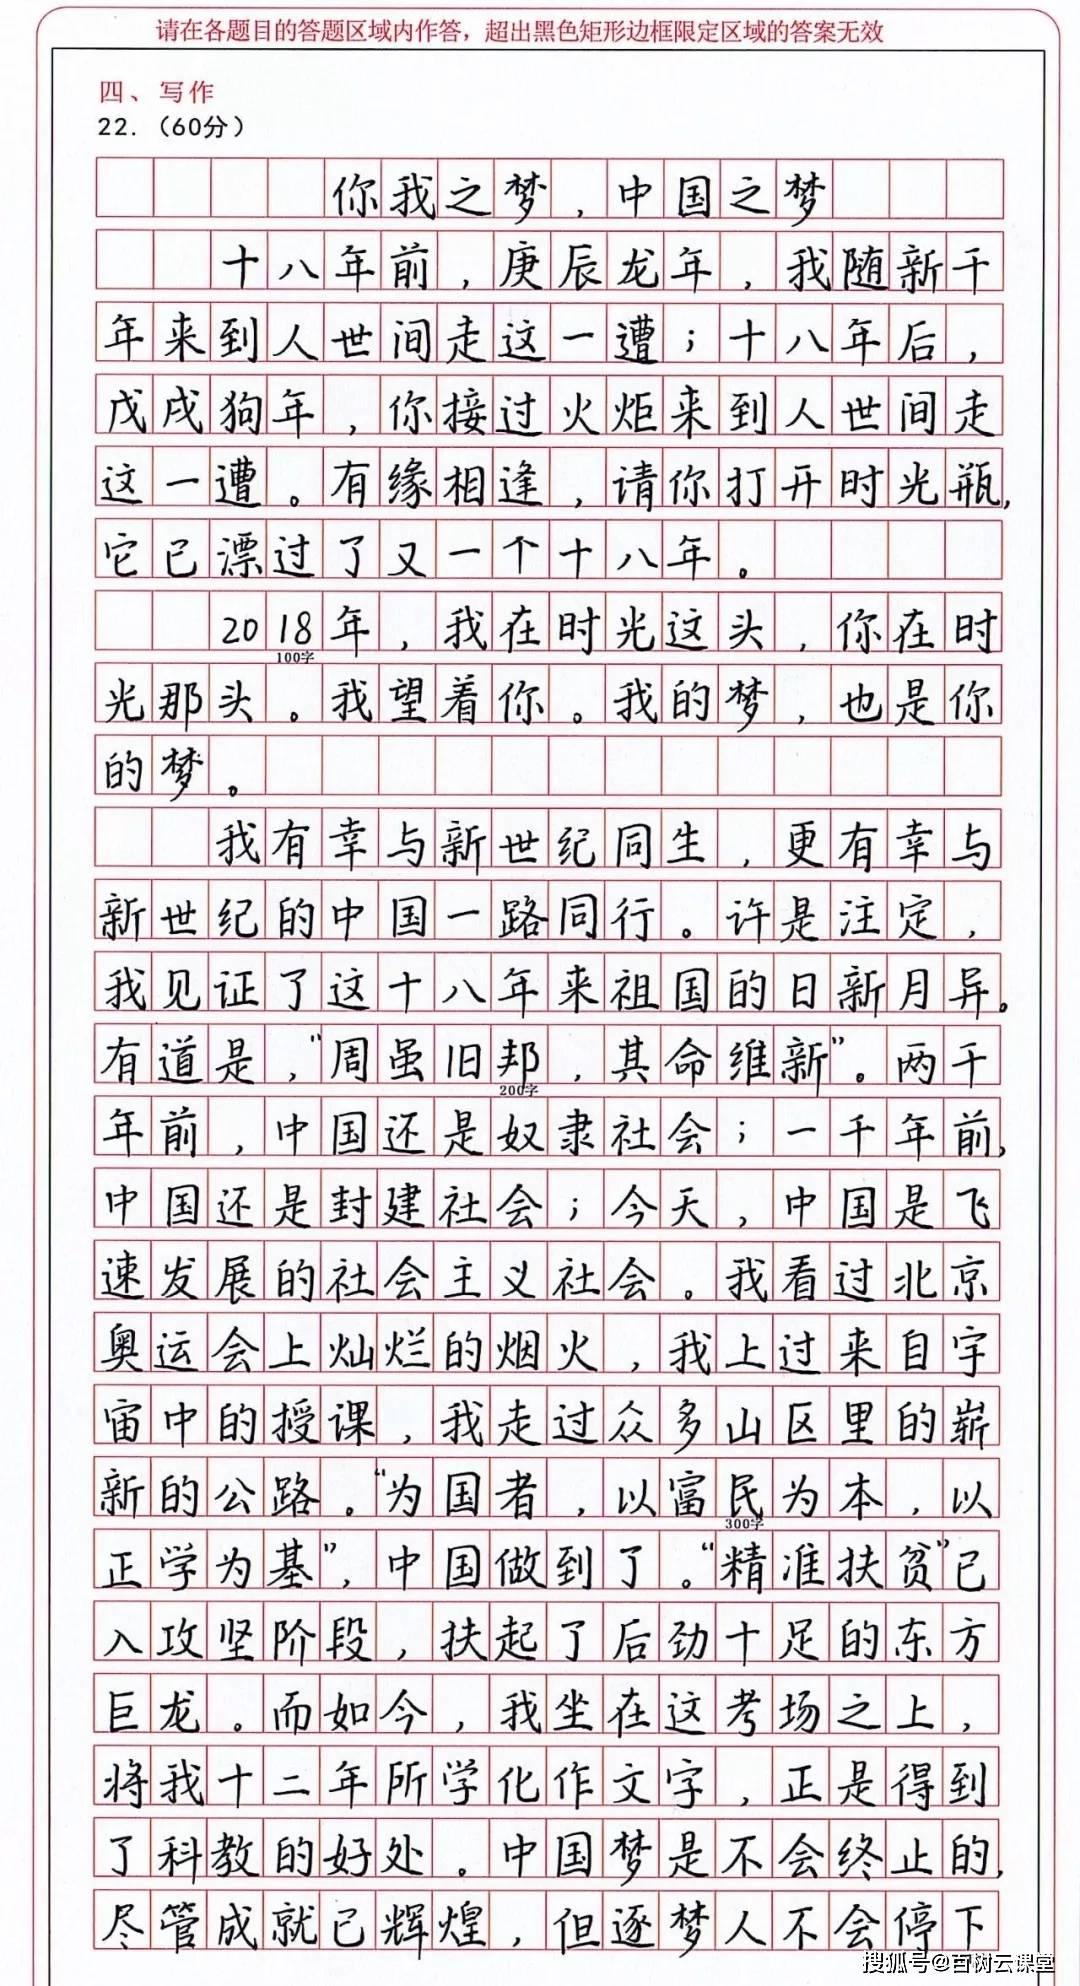 请在各题目的答题区域内作答，超出黑色矩形边框限定区域的答案无效
四、写作
22.（60分）
你我之梦，中国之梦
十八年前，庚辰龙年，我随新千
年来到人世间走这一遭；十八年后，
戊戌狗年，你接过火炬来到人世间走
这一遭。有缘相逢，请你打开时光瓶，
它已漂过了又一个十八年。
2018年，我在时光这头，你在时
100字
光那头。我望着你。我的梦，也是你
的梦。
我有幸与新世纪同生，更有幸与
新世纪的中国一路同行。许是注定，
我见证了这十八年来祖国的日新月异。
有道是，“周虽旧邦，其命维新”。两千
200字
年前，中国还是奴隶社会；一千年前，
中国还是封建社会；今天，中国是飞
速发展的社会主义社会。我看过北京
奥运会上灿烂的烟火，我上过来自宇
宙中的授课，我走过众多山区里的崭
新的公路。“为国者，以富民为本，以
300字
正学为基”，中国做到了。“精准扶贫”已
入攻坚阶段，扶起了后劲十足的东方
巨龙。而如今，我坐在这考场之上，
将我十二年所学化作文字，正是得到
了科教的好处。中国梦是不会终止的，
尽管成就已辉煌，但逐梦人不会停下
搜狐号@百树云课堂